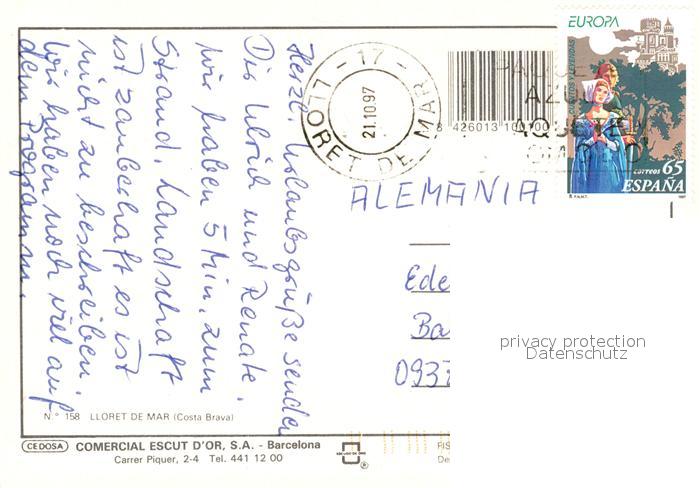 Herzl. Urlaubsgrüße senden
Dir Ulrich und Renate.
Wir haben 5 Min. zum
Strand. Landschaft
ist zauberhaft es ist
nicht zu beschreiben.
Wir haben noch viel auf
dem Programm.
EUROPA
CORREOS 65
ESPAÑA
R.F.N.M.T. 1997
- 17 -
21.10.97
LLORET DE MAR
8 426013 10
ALEMANIA
Ede
Ba
0937
privacy protection
Datenschutz
N.° 158 LLORET DE MAR (Costa Brava)
CEDOSA COMERCIAL ESCUT D'OR, S.A. - Barcelona
Carrer Piquer, 2-4 Tel. 441 12 00
FIS
De